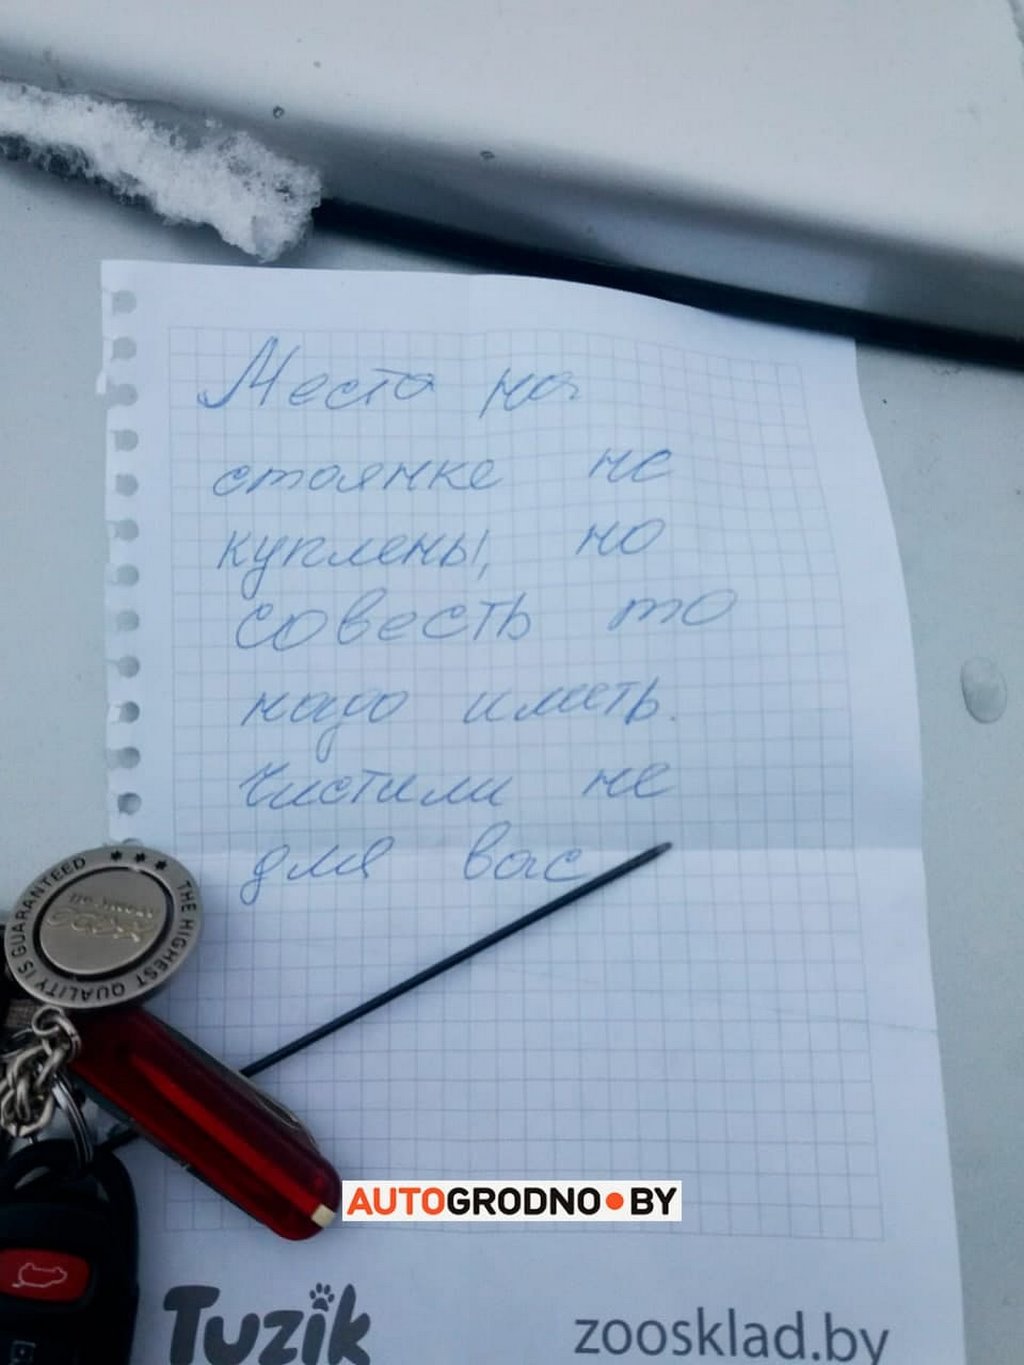 Места на
стоянке не
куплены, но
совесть то
надо иметь.
Чистили не
для вас
THE HIGHEST QUALITY IS GUARANTEED
AUTOGRODNO.BY
Tuzik
zoosklad.by